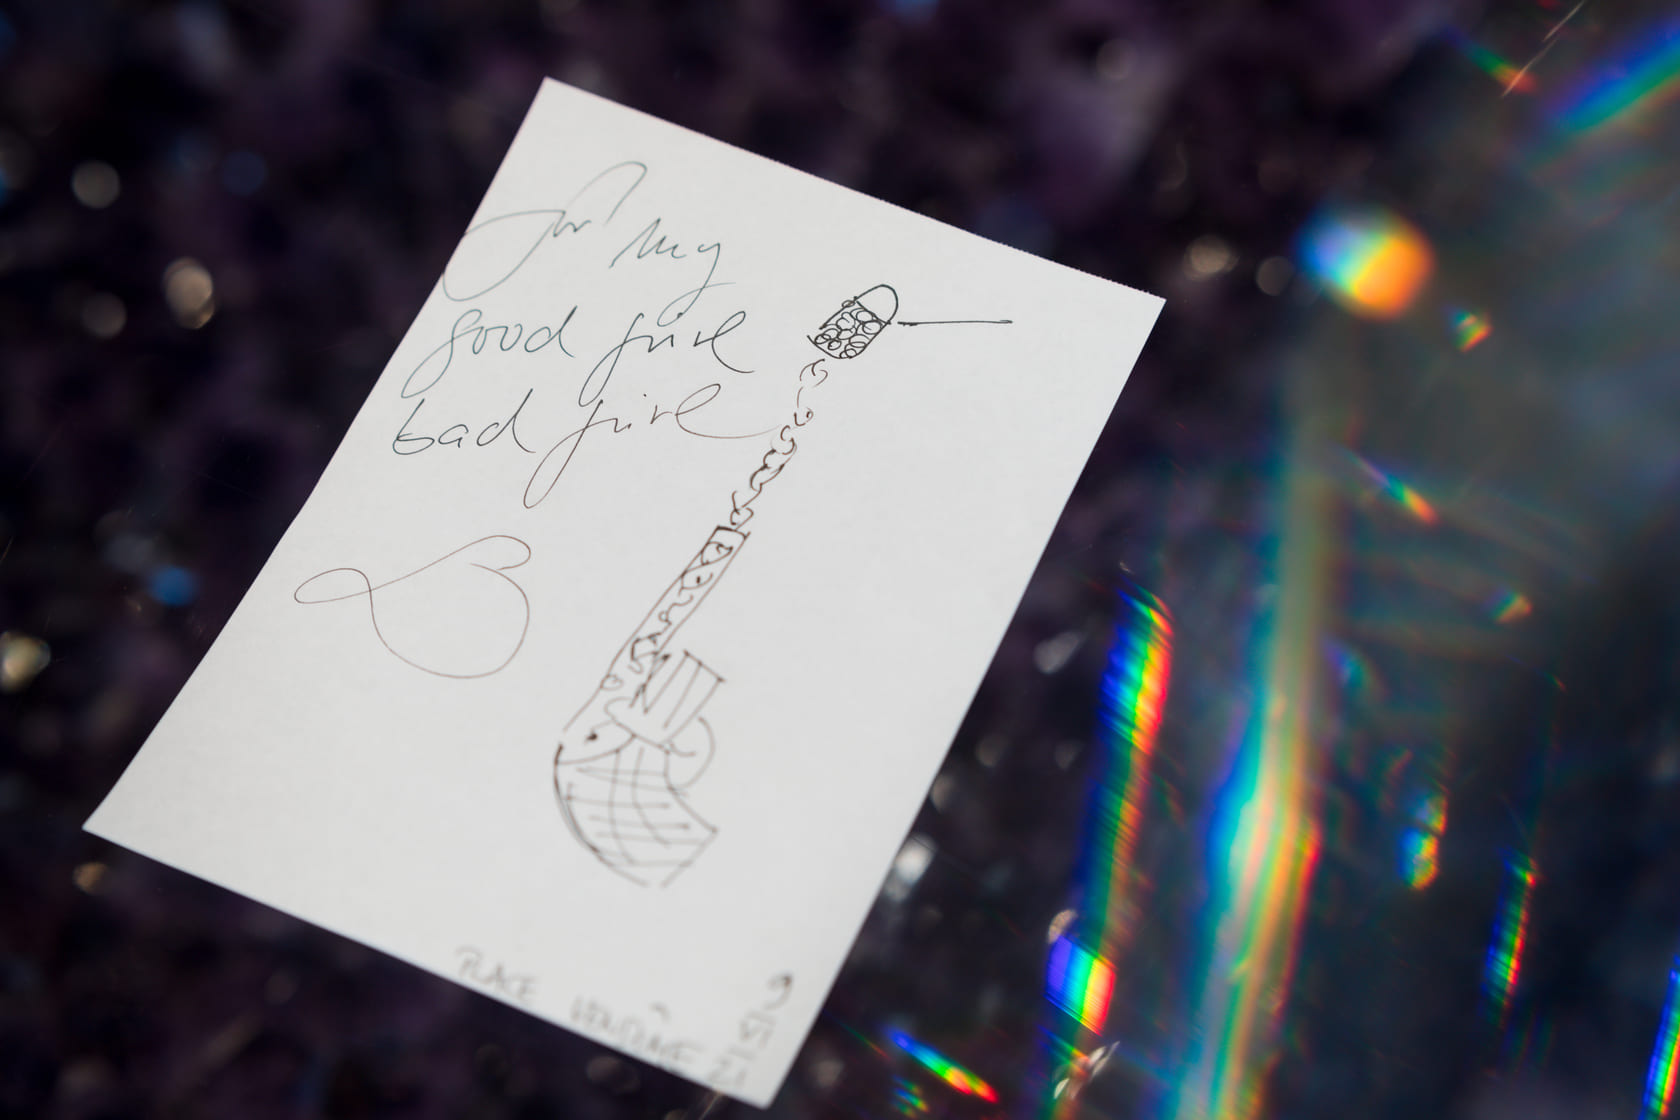 For my
good girl
bad girl
PLACE VENDÔME 21
9
VI